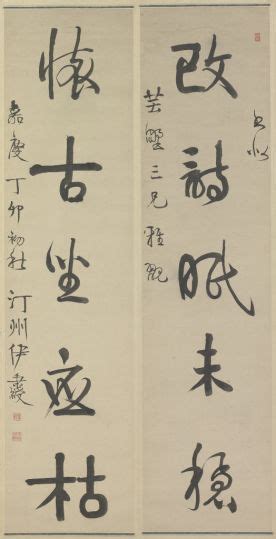 書似
改詩眠未穩
芸三兄雅觀
懷古坐應枯
嘉慶丁卯初秋汀州伊秉綬